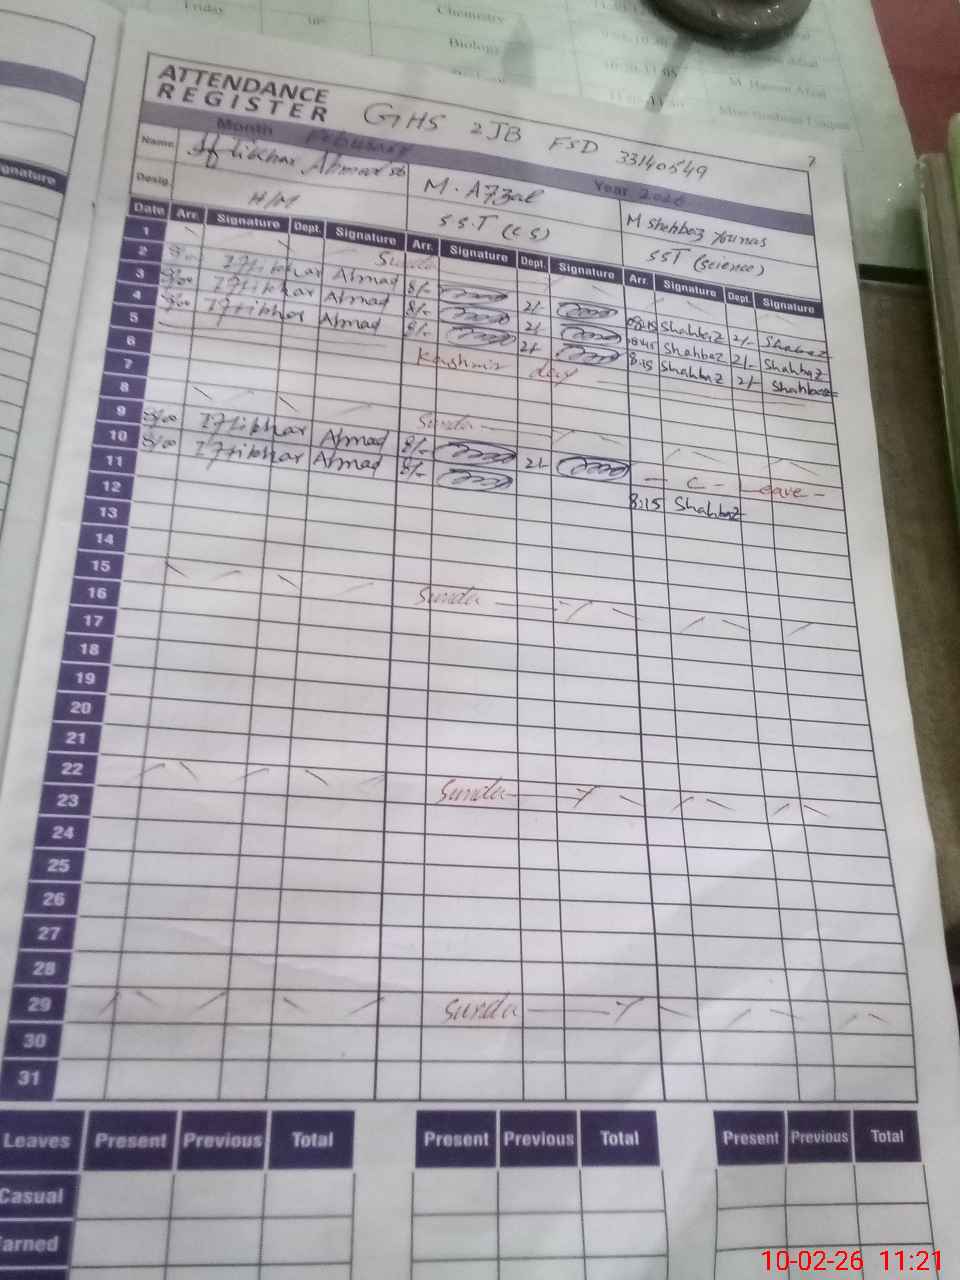 Friday 10th Chemistry
Biology
M. Hassan Afzal
ATTENDANCE
REGISTER GHS 2JB FSD 33140549
7
Month February Year 2026
Name Iftikhar Ahmad sb M. Afzal M Shahbaz Younas
Desig. H/M S.S.T (C.S) SST (science)
Date Arr. Signature Dept. Signature Arr. Signature Dept. Signature Arr. Signature Dept. Signature
1 Sunda
2 8/00 Iftikhar Ahmad 8/- 2/- 08:15 Shahbaz 2/- Shahbaz
3 8/00 Iftikhar Ahmad 8/- 2/- 08:15 Shahbaz 2/- Shahbaz
4 8/00 Iftikhar Ahmad 8/- 2/- 8:15 Shahbaz 2/- Shahbaz
5 Kashmir day
6
7
8 Sunda y
9 8/00 Iftikhar Ahmad 8/- 2/- C - Leave -
10 8/00 Iftikhar Ahmad 8/- 8:15 Shahbaz
11
12
13
14
15 Sunda y
16
17
18
19
20
21
22 Sunda y
23
24
25
26
27
28
29 Sunda y
30
31
Leaves Present Previous Total Present Previous Total Present Previous Total
Casual
Earned
10-02-26 11:21